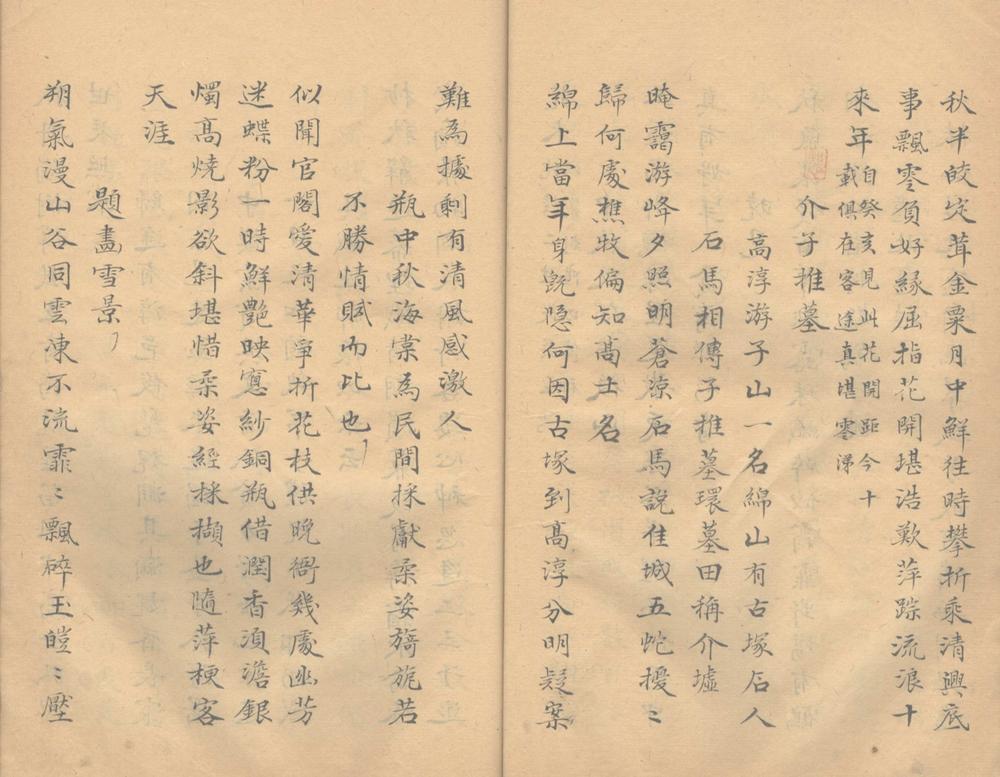 秋半皎定茸金粟月中鮮往時攀折乘清興底
事飄零負好緣屈指花開堪浩歎萍踪流浪十
來年自癸亥見此花開距今十
載俱在客途真堪零涕
介子推墓
高淳游子山一名綿山有古塚石人
石馬相傳子推墓環墓田稱介墟
晻靄游峰夕照明蒼凉石馬說佳城五蛇擾〻
歸何處樵牧偏知高士名
綿上當年身旣隱何因古塚到高淳分明疑案
難為據剩有清風感激人
瓶中秋海棠為民間採獻柔姿旖旎若
不勝情賦而比也
似聞官閣愛清華爭折花枝供晚衙幾處幽芳
迷蝶粉一時鮮艷映窻紗銅瓶借潤香須澹銀
燭高燒影欲斜堪惜柔姿經採擷也隨萍梗客
天涯
題畫雪景
朔氣漫山谷同雲凍不流霏〻飄碎玉皚〻壓